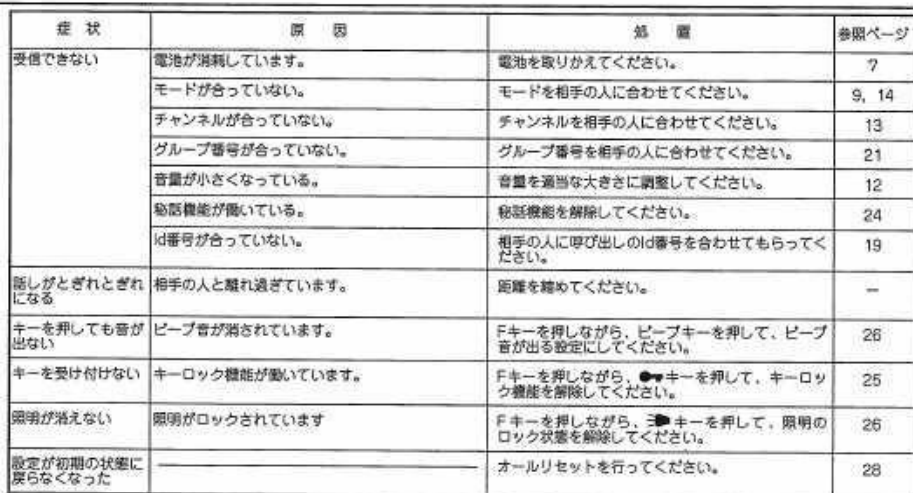 症 状 原 因 処 置 参照ページ
受信できない 電池が消耗しています。 電池を取りかえてください。 7
モードが合っていない。 モードを相手の人に合わせてください。 9, 14
チャンネルが合っていない。 チャンネルを相手の人に合わせてください。 13
グループ番号が合っていない。 グループ番号を相手の人に合わせてください。 21
音量が小さくなっている。 音量を適当な大きさに調整してください。 12
秘話機能が働いている。 秘話機能を解除してください。 24
Id番号が合っていない。 相手の人に呼び出しのId番号を合わせてもらってく
ださい。 19
話しがとぎれとぎれ
になる 相手の人と離れ過ぎています。 距離を縮めてください。 −
キーを押しても音が
出ない ビープ音が消されています。 Fキーを押しながら、ビープキーを押して、ビープ
音が出る設定にしてください。 26
キーを受け付けない キーロック機能が働いています。 Fキーを押しながら、キーを押して、キーロッ
ク機能を解除してください。 25
照明が消えない 照明がロックされています Fキーを押しながら、キーを押して、照明の
ロック状態を解除してください。 26
設定が初期の状態に
戻らなくなった オールリセットを行ってください。 28